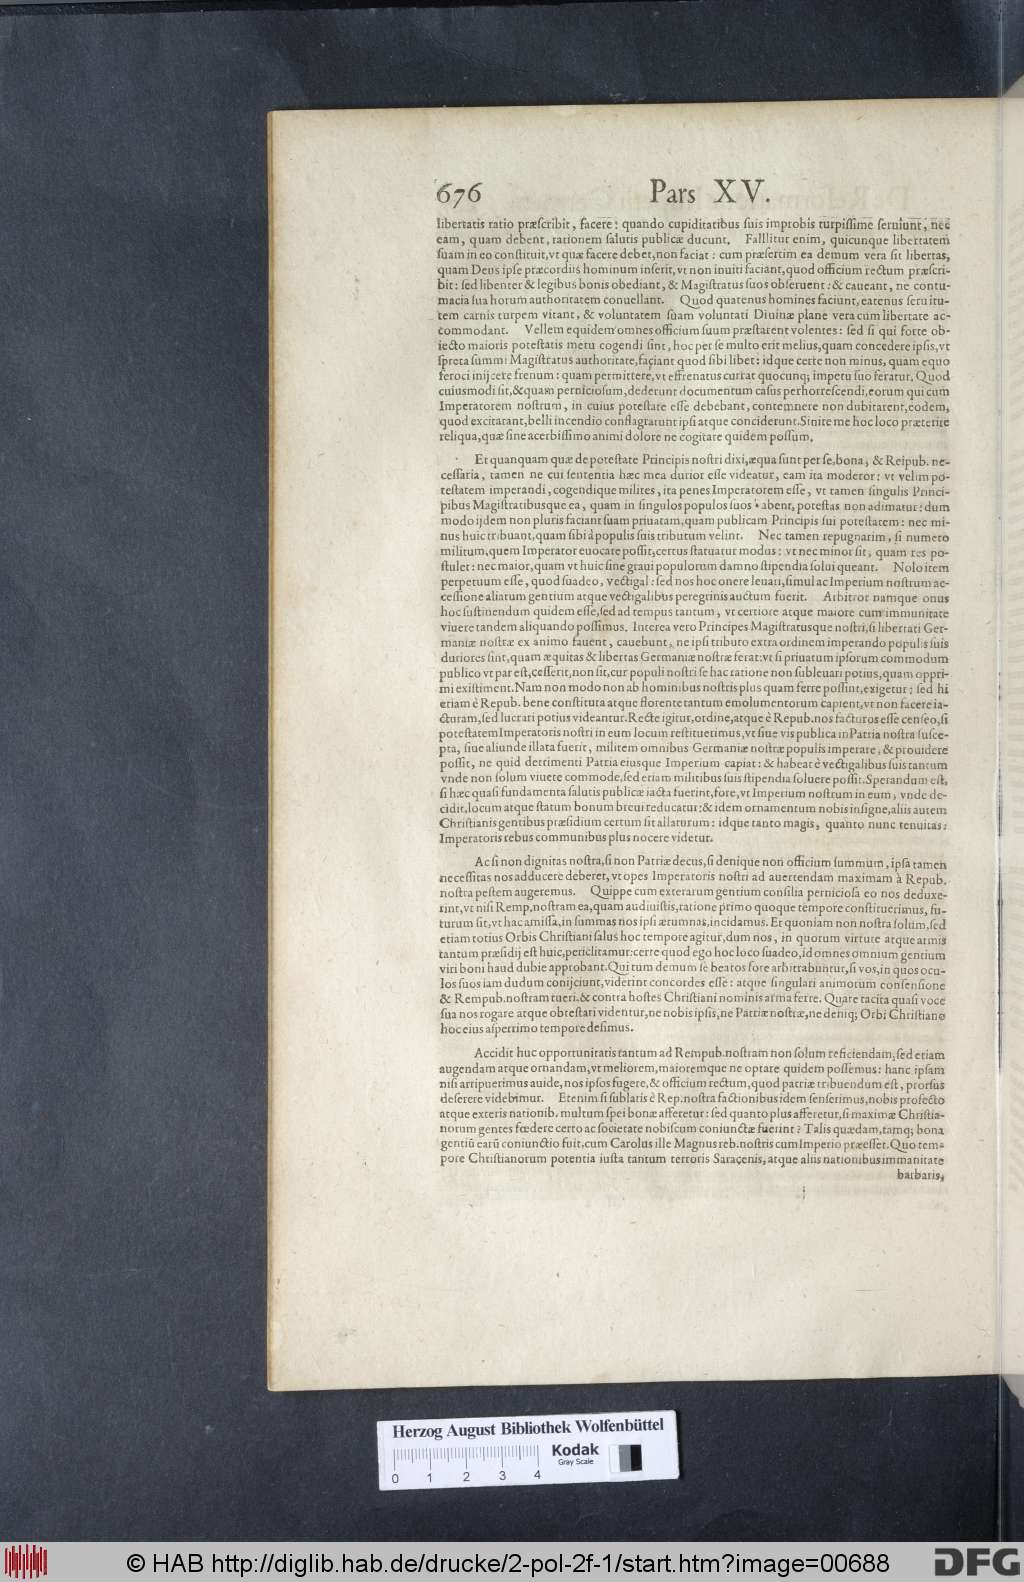 676 Pars XV.
libertatis ratio præſcribit, facere: quando cupiditatibus ſuis improbis turpiſſime ſeruiunt, nec
eam, quam debent, rationem ſalutis publicæ ducunt. Falllitur enim, quicunque libertatem
ſuam in eo conſtituit, vt quæ facere debet, non faciat: cum præſertim ea demum vera ſit libertas,
quam Deus ipſe præcordiis hominum inſerit, vt non inuiti faciant, quod officium rectum præſcri-
bit: ſed libenter & legibus bonis obediant, & Magiſtratus ſuos obſeruent: & caueant, ne contu-
macia ſua horum authoritatem conuellant. Quod quatenus homines faciunt, eatenus ſeruitu-
tem carnis turpem vitant, & voluntatem ſuam voluntati Diuinæ plane vera cum libertate ac-
commodant. Vellem equidem omnes officium ſuum præſtarent volentes: ſed ſi qui forte ob-
iecto maioris poteſtatis metu cogendi ſint, hoc per ſe multo erit melius, quam concedere ipſis, vt
ſpreta ſummi Magiſtratus authoritate, faciant quod ſibi libet: idque certe non minus, quam equo
feroci inijcere frenum: quam permittere, vt effrenatus currat quocunq; impetu ſuo feratur. Quod
cuiusmodi ſit, & quam perniciosum, dederunt documentum caſus perhorreſcendi, eorum qui cum
Imperatorem noſtrum, in cuius poteſtate eſſe debebant, contemnere non dubitarent, eodem,
quod excitarant, belli incendio conflagrarunt ipſi atque conciderunt. Sinite me hoc loco præterire
reliqua, quæ ſine acerbiſſimo animi dolore ne cogitare quidem poſſum.
Et quanquam quæ de poteſtate Principis noſtri dixi, æqua ſunt per ſe, bona, & Reipub. ne-
ceſſaria, tamen ne cui ſententia hæc mea durior eſſe videatur, eam ita moderor: vt velim po-
teſtatem imperandi, cogendique milites, ita penes Imperatorem eſſe, vt tamen ſingulis Princi-
pibus Magiſtratibusque ea, quam in ſingulos populos ſuos abent, poteſtas non adimatur: dum
modo ijdem non pluris faciant ſuam priuatam, quam publicam Principis ſui poteſtatem: nec mi-
nus huic tribuant, quam ſibi à populis ſuis tributum velint. Nec tamen repugnarim, ſi numero
militum, quem Imperator euocare poſſit, certus ſtatuatur modus: vt nec minor ſit, quam res po-
ſtulet: nec maior, quam vt huic ſine graui populorum damno ſtipendia ſolui queant. Nolo item
perpetuum eſſe, quod ſuadeo, vectigal: ſed nos hoc onere leuari, ſimul ac Imperium noſtrum ac-
ceſſione aliarum gentium atque vectigalibus peregrinis auctum fuerit. Arbitror namque onus
hoc ſuſtinendum quidem eſſe, ſed ad tempus tantum, vt certiore atque maiore cum immunitate
viuere tandem aliquando poſſimus. Interea vero Principes Magiſtratusque noſtri, ſi libertati Ger-
maniæ noſtræ ex animo fauent, cauebunt, ne ipſi tributo extra ordinem imperando populis ſuis
duriores ſint, quam æquitas & libertas Germaniæ noſtræ ferat: vt ſi priuatum ipſorum commodum
publico vt par eſt, ceſſerit, non ſit, cur populi noſtri ſe hac ratione non ſubleuari potius, quam oppri-
mi exiſtiment. Nam non modo non ab hominibus noſtris plus quam ferre poſſint, exigetur: ſed hi
etiam è Repub. bene conſtituta atque florente tantum emolumentorum capient, vt non facere ia-
cturam, ſed lucrari potius videantur. Recte igitur, ordine, atque è Repub. nos facturos eſſe cenſeo, ſi
poteſtatem Imperatoris noſtri in eum locum reſtituerimus, vt ſiue vis publica in Patria noſtra ſuſce-
pta, ſiue aliunde illata fuerit, militem omnibus Germaniæ noſtræ populis imperare, & prouidere
poſſit, ne quid detrimenti Patria eiusque Imperium capiat: & habeat è vectigalibus ſuis tantum
vnde non ſolum viuere commode, ſed etiam militibus ſuis ſtipendia ſoluere poſſit. Sperandum eſt,
ſi hæc quaſi fundamenta ſalutis publicæ iacta fuerint, fore, vt Imperium noſtrum in eum, vnde de-
cidit, locum atque ſtatum bonum breui reducatur: & idem ornamentum nobis inſigne, aliis autem
Chriſtianis gentibus præſidium certum ſit allaturum: idque tanto magis, quanto nunc tenuitas
Imperatoris rebus communibus plus nocere videtur.
Ac ſi non dignitas noſtra, ſi non Patriæ decus, ſi denique non officium ſummum, ipſa tamen
neceſſitas nos adducere deberet, vt opes Imperatoris noſtri ad auertendam maximam à Repub.
noſtra peſtem augeremus. Quippe cum exterarum gentium conſilia pernicioſa eo nos deduxe-
rint, vt niſi Remp. noſtram ea, quam audiuiſtis, ratione primo quoque tempore conſtituerimus, fu-
turum ſit, vt hac amiſſa, in ſummas nos ipſi ærumnas, incidamus. Et quoniam non noſtra ſolum, ſed
etiam totius Orbis Chriſtiani ſalus hoc tempore agitur, dum nos, in quorum virtute atque armis
tantum præſidij eſt huic, periclitamur: certe quod ego hoc loco ſuadeo, id omnes omnium gentium
viri boni haud dubie approbant. Qui tum demum ſe beatos fore arbitrabuntur, ſi vos, in quos ocu-
los ſuos iam dudum conijciunt, viderint concordes eſſe: atque ſingulari animorum conſenſione
& Rempub. noſtram tueri, & contra hoſtes Chriſtiani nominis arma ferre. Quare tacita quaſi voce
ſua nos rogare atque obteſtari videntur, ne nobis ipſis, ne Patriæ noſtræ, ne deniq; Orbi Chriſtiano
hoc eius aſperrimo tempore deſimus.
Accidit huc opportunitatis tantum ad Rempub. noſtram non ſolum reficiendam, ſed etiam
augendam atque ornandam, vt meliorem, maioremque ne optare quidem poſſemus: hanc ipſam
niſi arripuerimus auide, nos ipſos fugere, & officium rectum, quod patriæ tribuendum eſt, prorſus
deſerere videbimur. Etenim ſi ſublatis è Rep. noſtra factionibus idem ſenſerimus, nobis profecto
atque exteris nationib. multum ſpei bonæ afferetur: ſed quanto plus afferetur, ſi maximæ Chriſtia-
norum gentes fœdere certo ac ſocietate nobiſcum coniunctæ fuerint? Talis quædam, tamq; bona
gentiū earū coniunctio fuit, cum Carolus ille Magnus reb. noſtris cum Imperio præeſſet. Quo tem-
pore Chriſtianorum potentia iuſta tantum terroris Saracenis, atque aliis nationibus immanitate
barbaris,
Herzog August Bibliothek Wolfenbüttel
Kodak
Gray Scale
0 1 2 3 4
© HAB http://diglib.hab.de/drucke/2-pol-2f-1/start.htm?image=00688
DFG